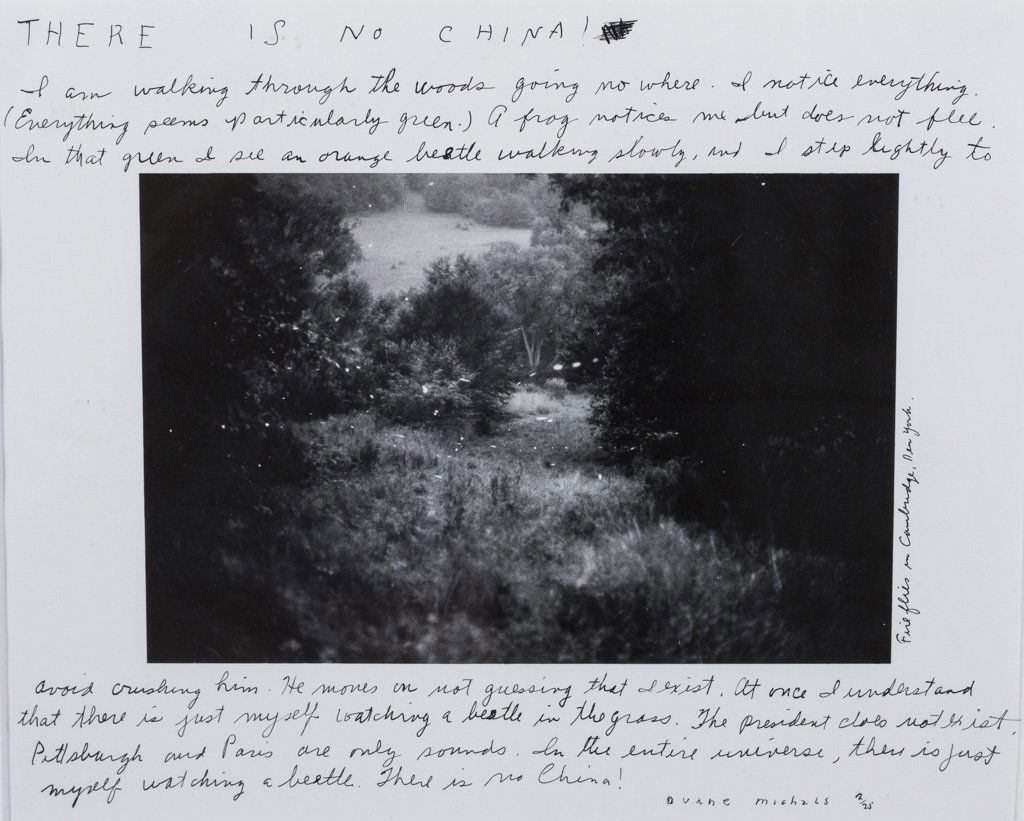 THERE IS NO CHINA!
I am walking through the woods going no where. I notice everything.
(Everything seems particularly green.) A frog notices me but does not flee.
In that green I see an orange beetle walking slowly, and I step lightly to
Fireflies in Cambridge, New York.
avoid crushing him. He moves on not guessing that I exist. At once I understand
that there is just myself watching a beetle in the grass. The president does not exist.
Pittsburgh and Paris are only sounds. In the entire universe, there is just
myself watching a beetle. There is no China!
Duane Michals 2/25